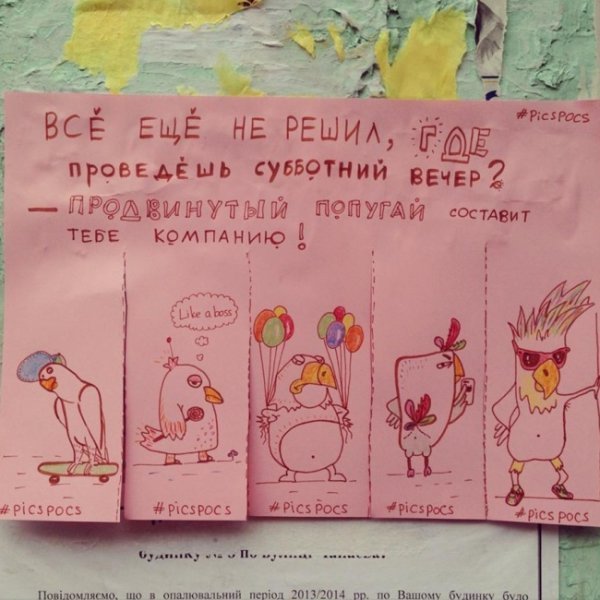 #PICSPOCS
ВСЁ ЕЩЁ НЕ РЕШИЛ, ГДЕ
ПРОВЕДЁШЬ СУББОТНИЙ ВЕЧЕР?
— ПРОДВИНУТЫЙ ПОПУГАЙ СОСТАВИТ
ТЕБЕ КОМПАНИЮ!
Like a boss
#PICSPOCS
#PICSPOCS
#PICSPOCS
#PICSPOCS
#PICSPOCS
Повідомляємо, що в опалювальний період 2013/2014 рр. по Вашому будинку було